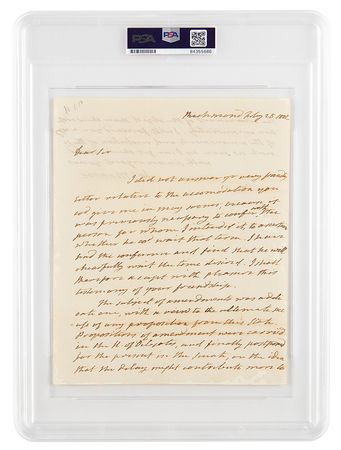 PSA
PSA
84355686
Richmond Feby 25.
Dear Sir
I did not answer yr very friendly
letter relative to the accomodation you
cod give me in my sons, because it
was previously necessary to confer with the
person for whom I intended it to ascertain
whether he cod wait that term. I have
had the conference and find that he will
chearfully wait the time desired. I shall
therefore accept with pleasure this
testimony of your friendship.
The subject of amendments was a delicate
one, with a view to the ultimate
of any proposition from this State.
Propositions of amendment were carried
in the H. of Delegates, and finally postponed
for the present in the Senate, on the idea
that the delay might contribute more to